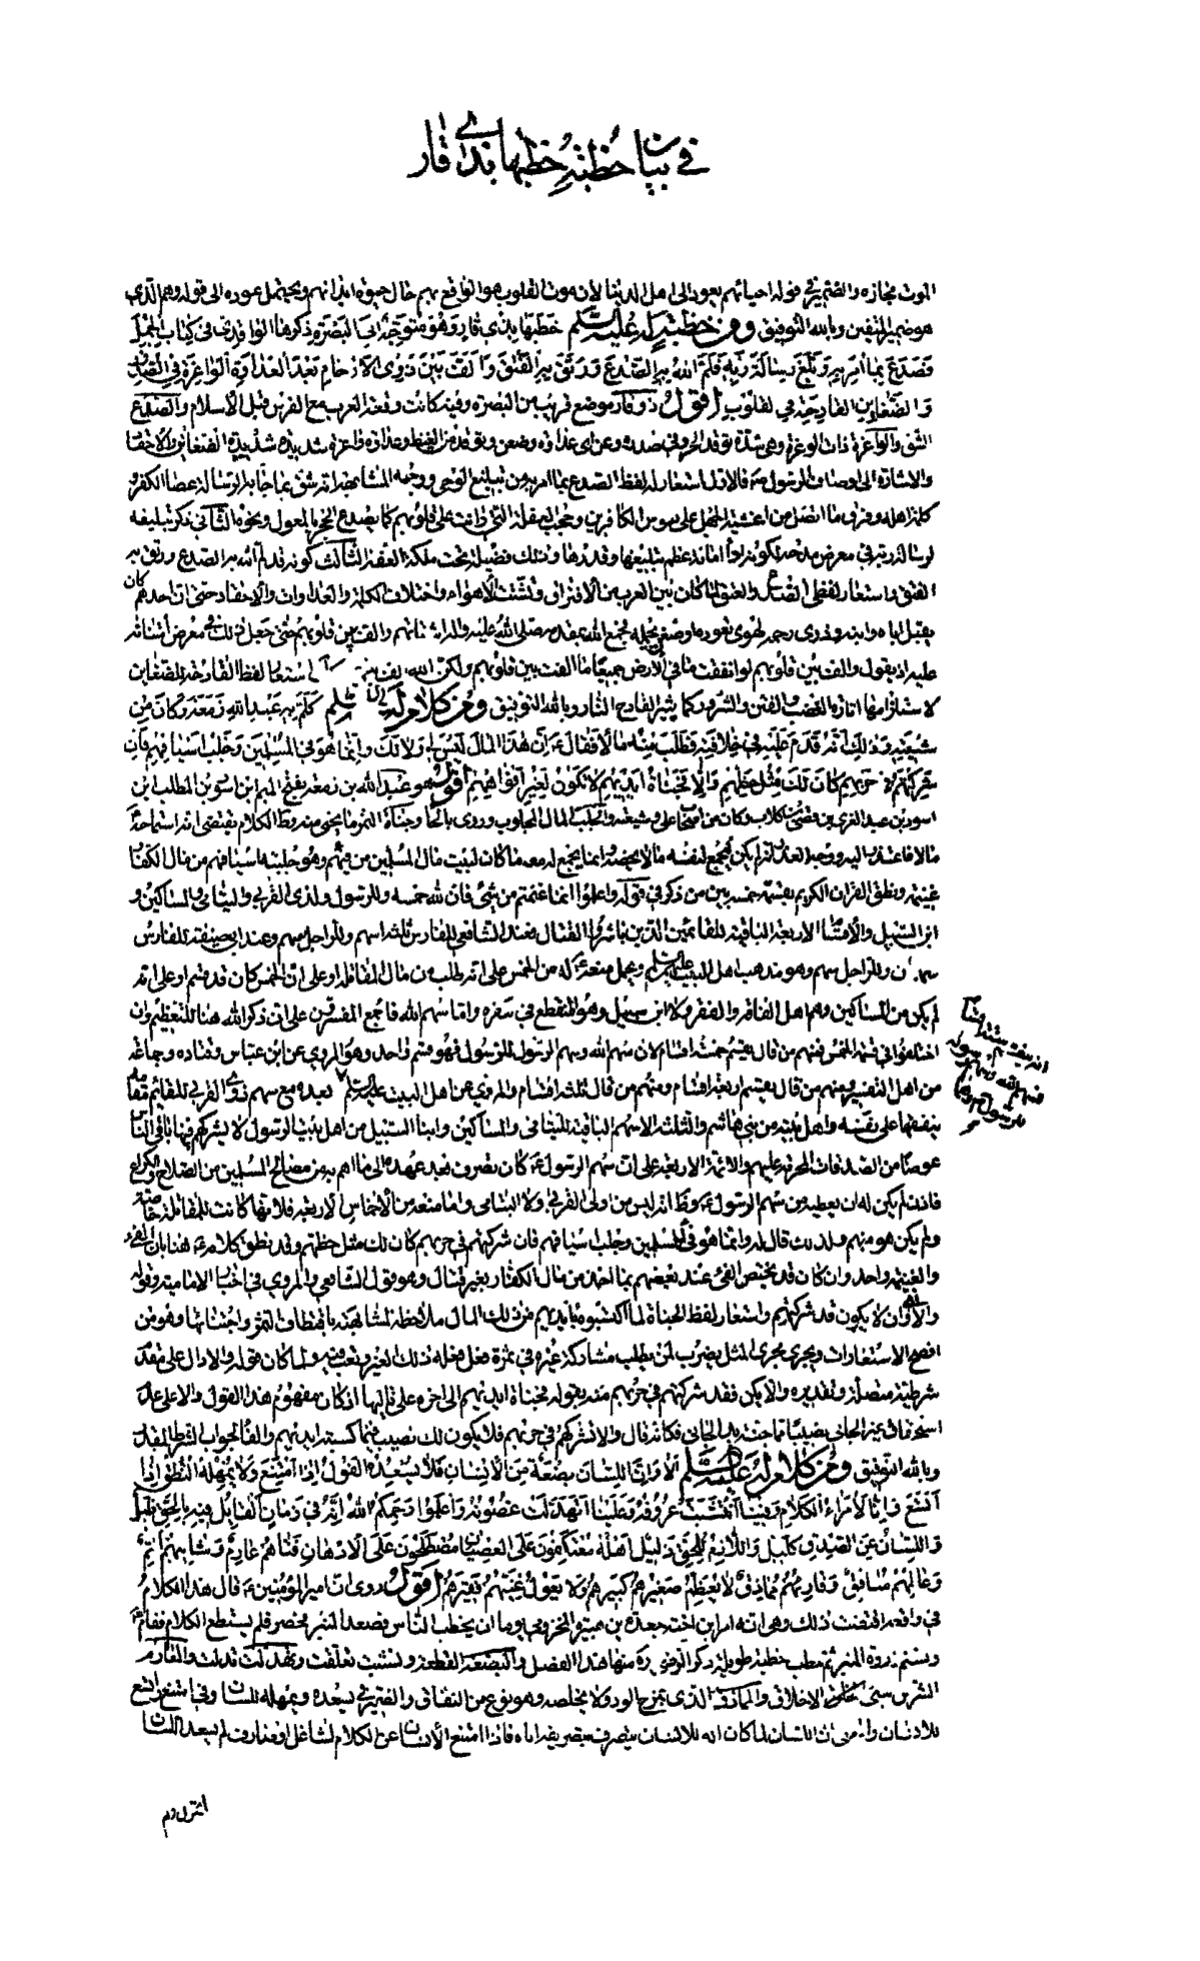 في بيان خطبة خطبها بذي قار
الموت مجازه والضمير في قوله احيائهم يعود الى اهل الدنيا لان موت القلوب هو الواقع بهم حال حيوة ابدانهم ويحتمل عوده الى قوله وهم الذي
هو ضمير المتقين وبالله التوفيق ومن خطبة له عليه السلم خطبها بذي قار وهو متوجه الى البصرة ذكرها الواقدي في كتاب الجمل
فصدع بما امر به وبلغ رسالة ربه فلم الله به الصدع ورتق به الفتق والف بين ذوي الارحام بعد العداوة الواغرة في الصدور
والضغاين القادحة في القلوب اقول ذو قار موضع قريب من البصرة وفيه كانت وقعة العرب مع الفرس قبل الاسلام والصدع
الشق والواغرة ذات الوغرة وهي شدة توقد الحر وفي صدره وغر اي عداوة وضغن وتوقد من الغيظ وعداوة واغرة شديدة والضغاين الاحقاد
والاشارة الى وصاف الرسول ص فالاول استعار له لفظ الصدع بما امر به من تبليغ الوحي ووجه المشابهة انه شق بما جاء به الرسالة عصا الكفر و
كلمة اهله وفرق ما اتصل من اغشية الجهل على رؤس الكافرين وحجب الغفلة التي رانت على قلوبهم كما يصدع الحجر بالمعول ونحوه الثاني ذكر تبليغه
لرسالة ربه في معرض مدحه لكونه اداء امانة عظم تبليغها وقدرها وتلك فضيلة تحت ملكة العفة الثالث كونه قد لم الله به الصدع ورتق به
الفتق واستعار لفظي الصدع والفتق لما كان بين العرب من الافتراق وتشتت الاهواء واختلاف الكلمة والعداوات والاحقاد حتى ان احدهم كان
يقتل اباه وابنه وذوي رحمه لهوى يقوده او ضغن يحمله فجمع الله بمقدمه صلى الله عليه واله اشتاتهم والف بين قلوبهم حتى جعل ذلك في معرض امتنانه
عليه اذ يقول والف بين قلوبهم لو انفقت ما في الارض جميعا ما الفت بين قلوبهم ولكن الله الف بينهم استعار لفظ القادحة للضغاين
لاستلزامها اثارة الغضب والفتن والشرور كما يثير القادح النار وبالله التوفيق ومن كلام له عليه السلم كلم به عبد الله بن زمعة وكان من
شيعته وذلك انه قدم عليه في خلافته فطلب منه مالا فقال ع ان هذا المال ليس لي ولا لك وانما هو فيء المسلمين وجلب اسيافهم فان
شركتهم في حربهم كان لك مثل حظهم والا فجناة ايديهم لا تكون لغير افواههم اقول هو عبد الله بن زمعة بفتح الميم ابن اسود بن المطلب بن
اسود بن عبد العزى بن قصي بن كلاب وكان من اصحاب علي وشيعته والجلب المال المجلوب وروي بالحاء وجناة الثمر ما يجنى منه وهذا الكلام يقتضي انه استماحه
مالا فاعتذر اليه ووجه العذر انه لم يكن ليجمع لنفسه مالا يخصه وانما يجمع له معه ما كان لبيت مال المسلمين من فيئهم وهو جلبته اسيافهم من مال الكفار
غنيمة ونطق القران الكريم بقسمة خمسه بين من ذكر في قوله واعلموا انما غنمتم من شيء فان لله خمسه وللرسول ولذي القربى واليتامى والمساكين و
ابن السبيل والاقسام الاربعة الباقية للغانمين الذين باشروا القتال فعند الشافعي للفارس ثلثة اسهم وللراجل سهم وعند ابي حنيفة للفارس
سهمان وللراجل سهم وهو مذهب اهل البيت عليهم السلم وعمل منعه له من الخمس على انه طلب من مال المقاتلة او على ان الخمس كان قد قسم او على انه
لم يكن من المساكين وهم اهل الفاقة والفقر ولا ابن سبيل وهو المنقطع في سفره واما سهم الله فاجمع المفسرون على ان ذكر الله هنا للتعظيم وان
اختلفوا في قسمة الخمس فمنهم من قال يقسم خمسة اقسام لان سهم الله وسهم الرسول للرسول فهو قسم واحد وهو المروي عن ابن عباس وقتادة وجماعة
من اهل التفسير ومنهم من قال يقسم اربعة اقسام ومنهم من قال ثلثة اقسام والمروي عن اهل البيت عليهم السلم بعده مع سهم ذوي القربى للقائم مقامه
ينفقها على نفسه واهل بيته من بني هاشم والثلثة الاسهم الباقية لليتامى والمساكين وابناء السبيل من اهل بيت الرسول لا يشركهم فيها باقي الناس
عوضا من الصدقات المحرمة عليهم والائمة الاربعة على ان سهم الرسول ص كان يصرف بعد عهده الى ما اهم به من مصالح المسلمين من السلاح والكراع
فاذن لم يكن له ان يعطيه من سهم الرسول ص وظ انه ليس من اولى القربى ولا اليتامى واما منعه من الاخماس الاربعة فلانها كانت للمقاتلة خاصة
ولم يكن هو منهم ولذلك قال له وانما هو فيء المسلمين وجلب اسيافهم فان شركتهم في حربهم كان لك مثل حظهم وقد نطق كلامه ع هنا بان الفيء
والغنيمة واحد وان كان قد يختص الفيء عند بعضهم بما اخذ من مال الكفار بغير قتال وهو قول الشافعي والمروي في اخبار الامامية وقوله
والا اي وان لا يكون قد شركتهم واستعار لفظ الجناة لما اكتسبوه بايديهم من ذلك المال ملاحظة لمشابهته باقتطاف الثمر واجتنائها وهو من
افصح الاستعارات ويجري مجرى المثل يضرب لمن يطلب مشاركة غيره في ثمرة فعل فعله ذلك الغير وتعب فيه ولما كان قوله والا دال على مقدم
شرطية متصلة وتقديره والا يكن فقد شركتهم في حربهم نبه بقوله فجناة ايديهم الى اخره على تاليها اذ كان مفهوم هذا القول دالا على عدم
استحقاق غير الجاني نصيبا مما جنته يد الجاني فكانه قال والا تشركهم في حربهم فلا يكون لك نصيب فيما كسبته ايديهم والفاء لجواب الشرط المقدر
وبالله التوفيق ومن كلام له عليه السلم الا وان اللسان بضعة من الانسان فلا يسعده القول اذا امتنع ولا يمهله النطق اذا
اتسع وانا لامراء الكلام وفينا تنشبت عروقه وعلينا تهدلت غصونه واعلموا رحمكم الله انكم في زمان القائل فيه بالحق قليل
واللسان عن الصدق كليل واللازم للحق ذليل اهله معتكفون على العصيان مصطلحون على الادهان فتاهم عارم وشائبهم اثم
وعالمهم منافق وقارئهم مماذق لا يعظم صغيرهم كبيرهم ولا يعول غنيهم فقيرهم اقول روي ان امير المؤمنين ع قال هذا الكلام
في واقعة اقتضت ذلك وهي انه امر ابن اخته جعدة بن هبيرة المخزومي يوما ان يخطب الناس فصعد المنبر فحصر فلم يستطع الكلام فقام ع
وتسنم ذروة المنبر ثم خطب خطبة طويلة ذكر الرضي ره منها هذا الفصل والبضعة القطعة وتنشبت تعلقت وتهدلت تدلت والعارم
الشرس سيئ الخلق والمماذق الذي يمزج الود ولا يخلصه وهو نوع من النفاق والضمير في يسعده ويمهله للسان وفي امتنع واتسع
للانسان والمعنى ان اللسان لما كان الة للانسان يتصرف بتصريفه اياه فاذا امتنع الانسان عن الكلام لشاغل او صارف لم يسعد اللسان